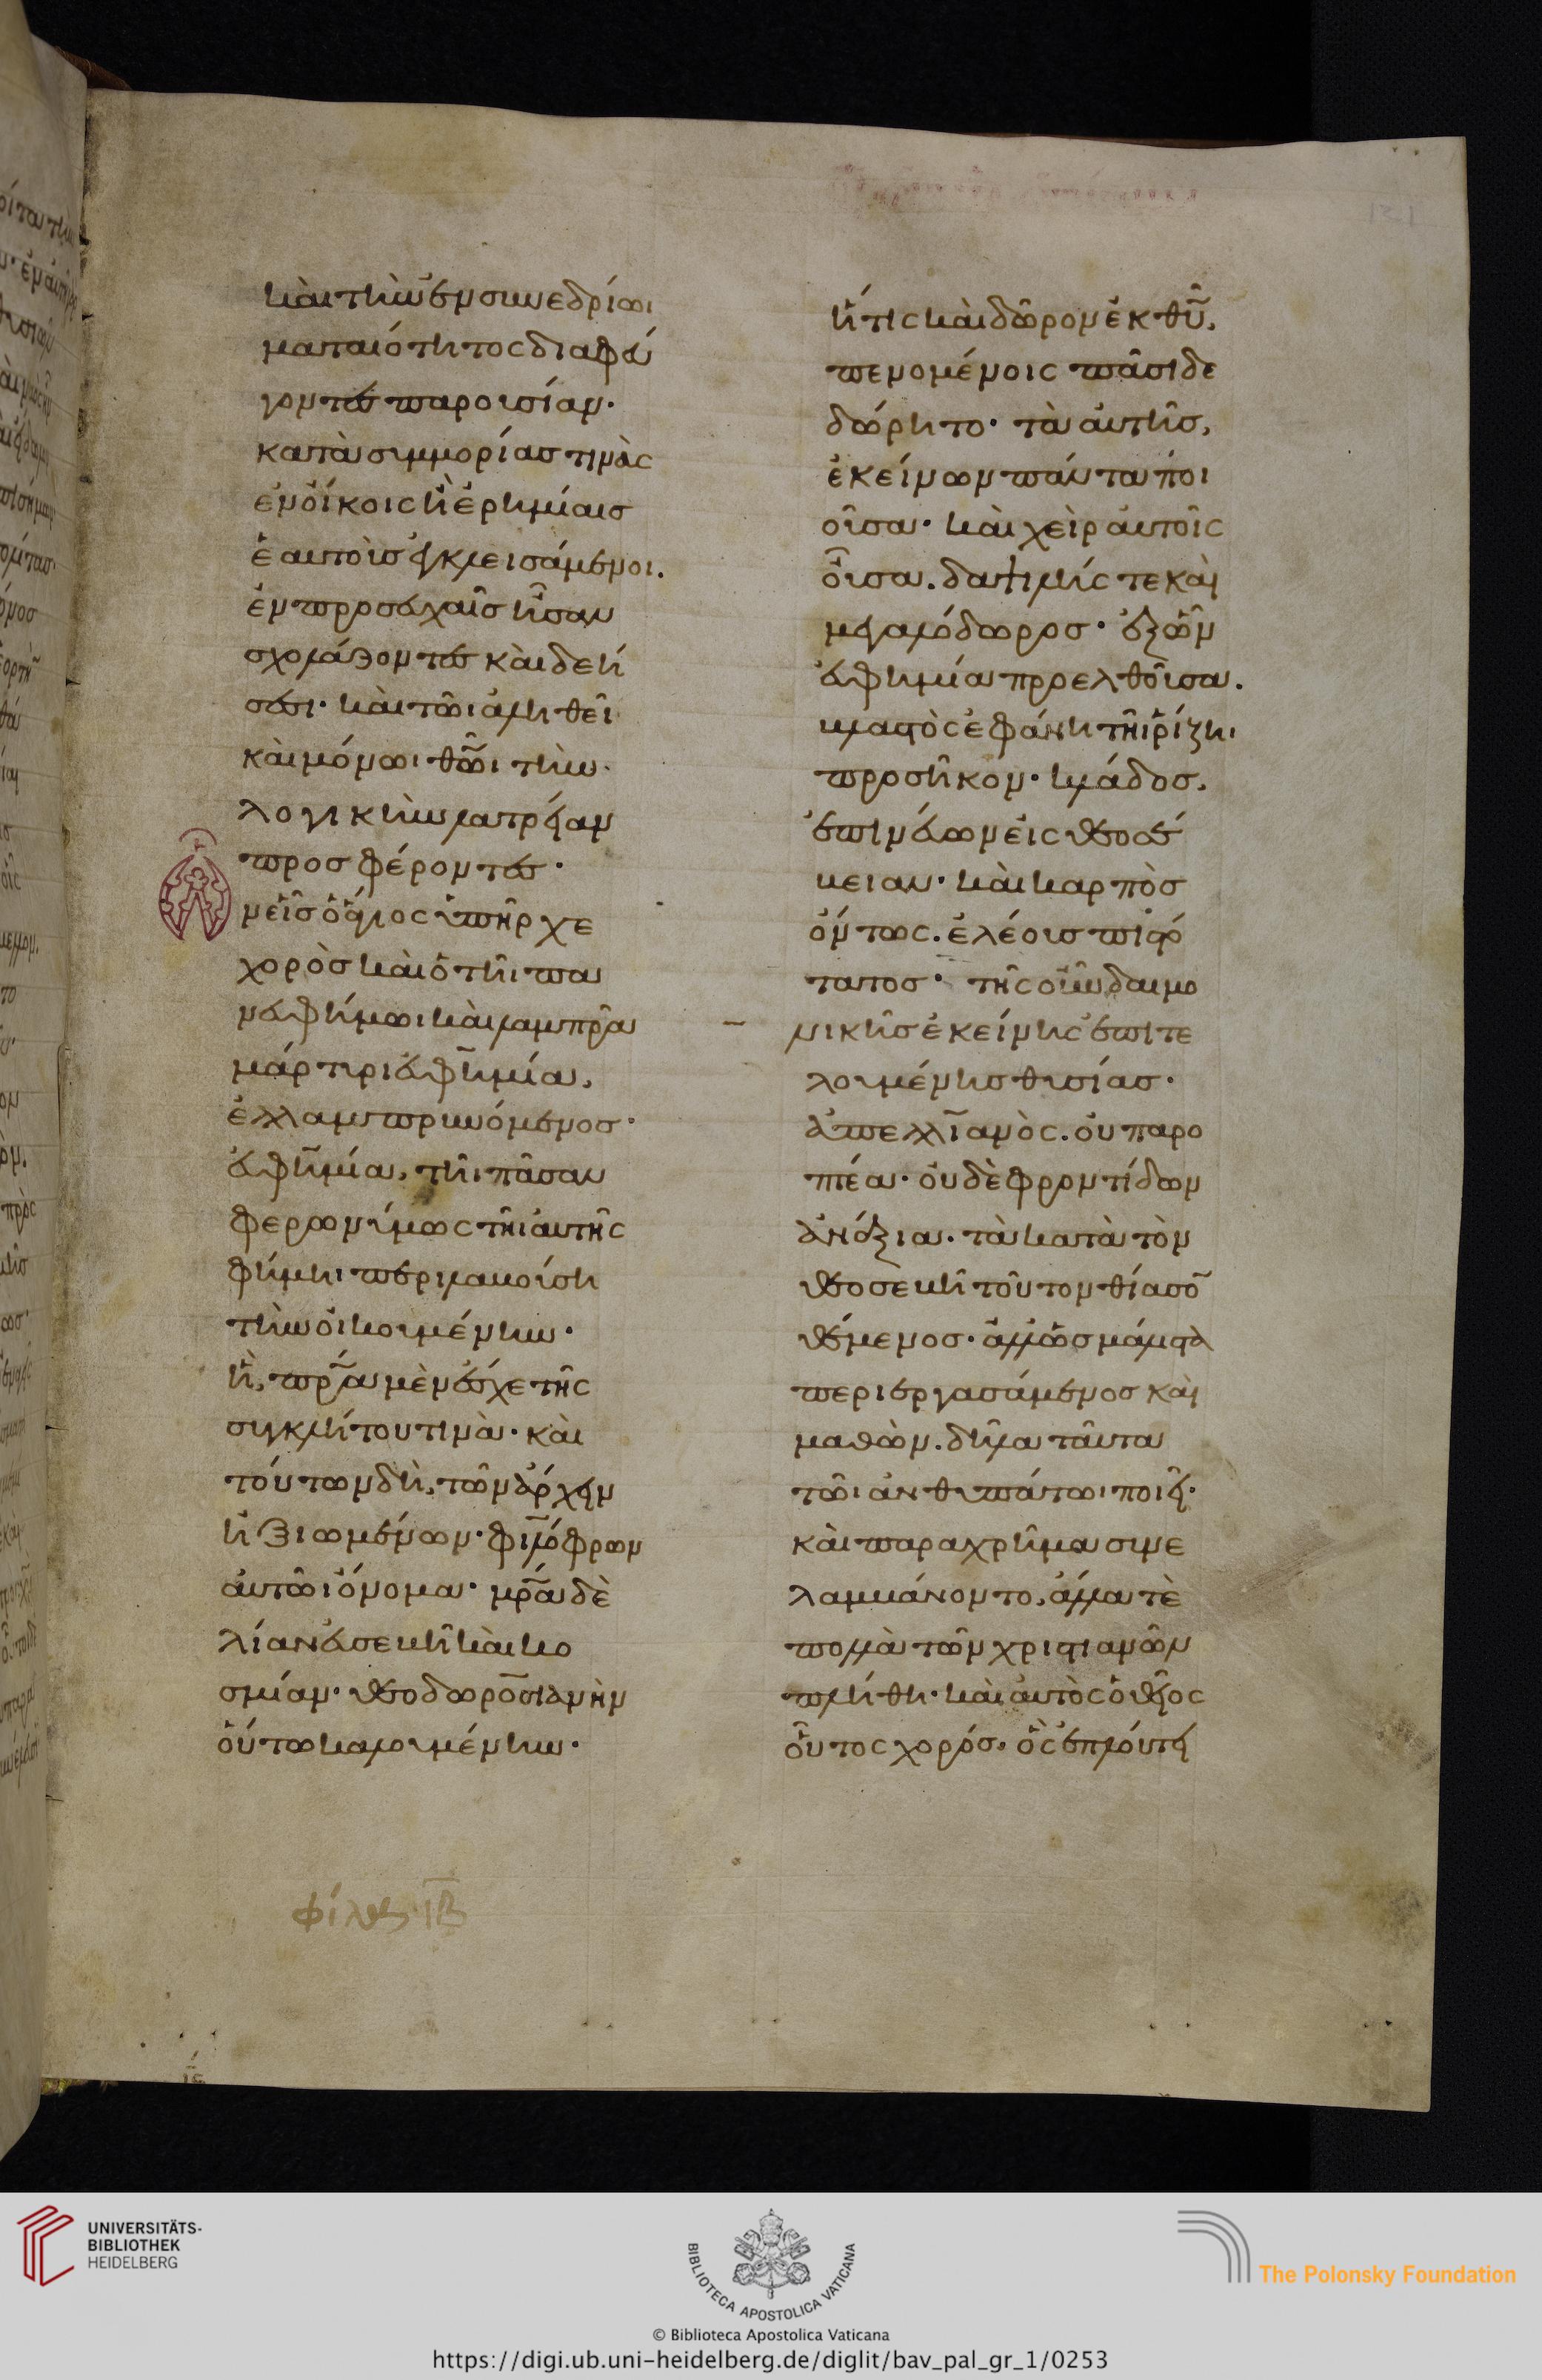 καὶ τὴν ἐν συνεδρίωι
ματαιότητος διαφεύ
γοντες παρουσίαν·
κατὰ συμμορίας τινὰς
ἐν οἴκοις ἢ ἐρημίαις
ἑαυτοὺς ἐγκλεισάμενοι.
ἐν προσευχαῖς ἦσαν
σχολάζοντες καὶ δεή
σεσι· καὶ τῶι ἀληθεῖ
καὶ μόνωι θ̅ω̅ι τὴν
λογικὴν λατρείαν
προσφέροντες·
μεῖς ὁ ἅγιος ὑπῆρχε
χορὸς καὶ ὁ τῆι πα
νευφήμωι καὶ λαμπρᾶ
μάρτυρι εὐφημία,
ἐλλαμπρυνόμενος·
εὐφημία, τῆι πᾶσαν
φερωνύμως τῆι αὐτῆς
φήμηι περιλαβούση
τὴν οἰκουμένην·
ἣ, π̅ρ̅α μὲν ἔσχε τῆς
συγκλήτου τινὰ· καὶ
τούτων δὴ, τῶν ἄρχειν
ἠξιωμένων· φιλόφρων
αὐτῶι ὄνομα· μ̅ρ̅α δὲ
λίαν εὐσεβῆ καὶ κο
σμίαν· θεοδωροσιανὴν
οὕτω καλουμένην·
ἥτις καὶ δῶρον ἐκ θ̅υ̅,
πενομένοις πᾶσι δε
δώρητο· τὰ αὐτῆς,
ἐκείνων πάντα ποι
οῦσα· καὶ χεὶρ αὐτοῖς
οὖσα. δαψιλής τε καὶ
μεγαλόδωρος· ἐξ ὧν
εὐφημία προελθοῦσα.
βλαστὸς ἐφάνη τῆι ῥίζηι
προσῆκον· κλάδος,
ἐπινεύων εἰς θεοσέ
βειαν· καὶ καρπὸς
ὄντως. ἐλέους πιό
τατος· τῆς οὖν δαιμο
νικῆς ἐκείνης ἐπιτε
λουμένης θυσίας·
ἀπελλιανὸς. οὐ παρο
πτέα· οὐδὲ φροντίδων
ἀνάξια· τὰ κατὰ τὸν
θεοσεβῆ τοῦτον θίασο̅
θέμενος· ἀλλ' ὡς μάλιστα
περιεργασάμενος καὶ
μαθὼν. δῆλα ταῦτα
τῶι ἀνθυπάτωι ποιεῖ·
καὶ παραχρῆμα συνε
λαμβάνοντο, ἄλλα τὲ
πολλὰ τῶν χριστιανῶν
πλήθη· καὶ αὐτὸς ὁ θεῖος
οὗτος χορός, ὃς ἐπλούτει
ι̅ε̅
UNIVERSITÄTS-
BIBLIOTHEK
HEIDELBERG
BIBLIOTECA APOSTOLICA VATICANA
The Polonsky Foundation
© Biblioteca Apostolica Vaticana
https://digi.ub.uni-heidelberg.de/diglit/bav_pal_gr_1/0253